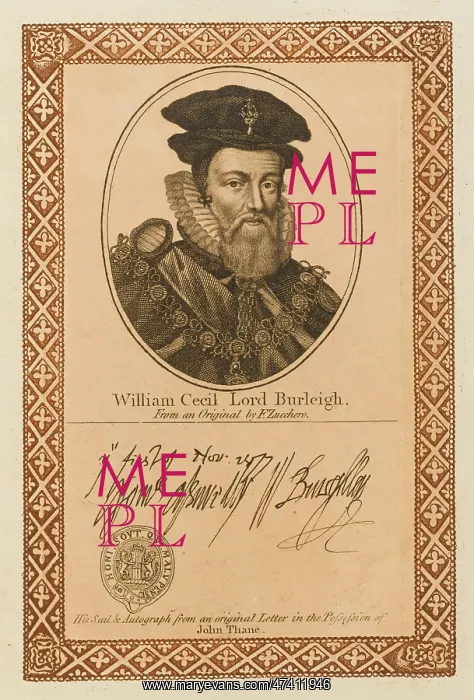 ME
PL
William Cecil Lord Burleigh.
From an Original by F. Zucchero.
Nov.
W Burghley
ME
PL
HONI SOYT Q MALY PENSE
His Seal & Autograph from an original Letter in the Possession of
John Thane.
www.maryevans.com/47411946